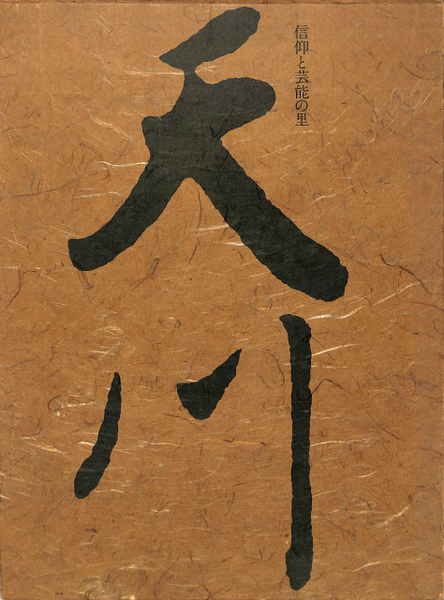 信仰と芸能の里
天川